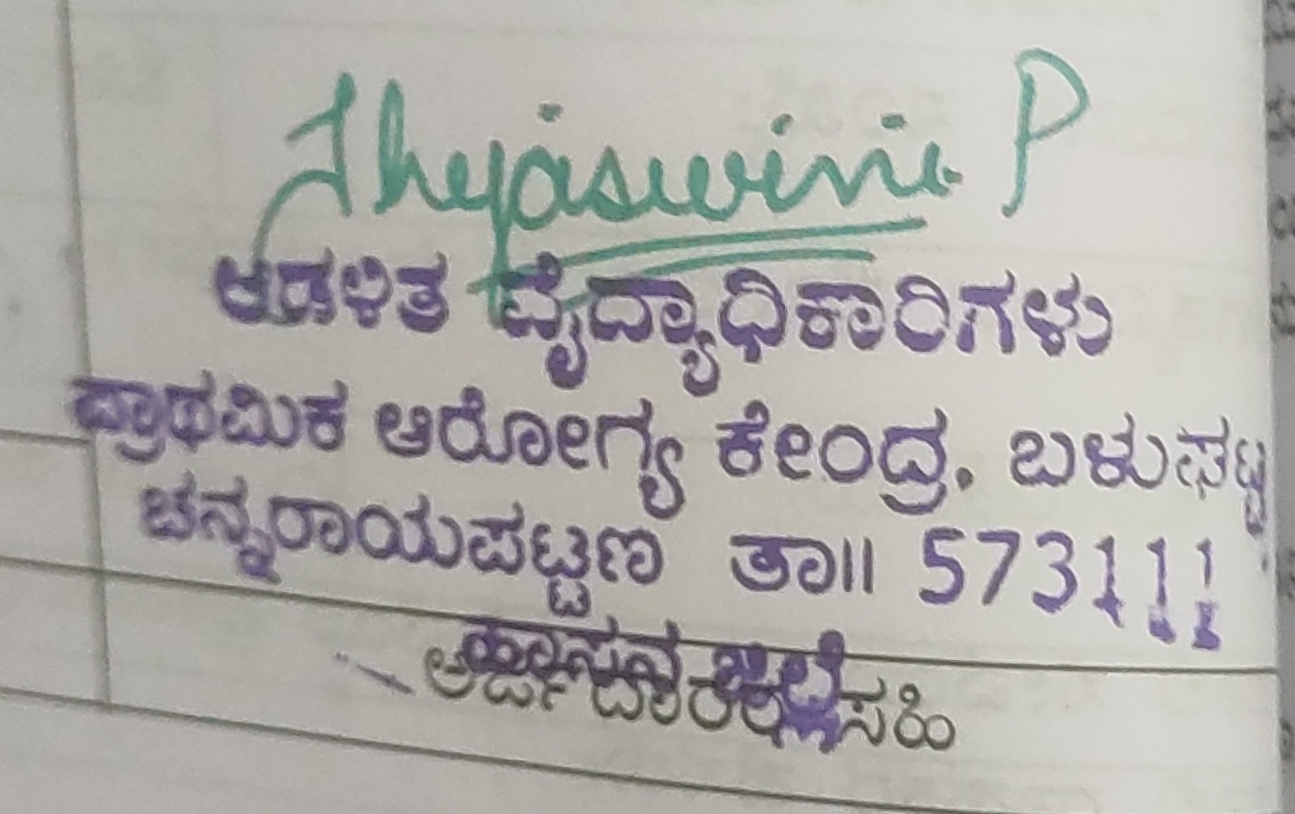 Thejaswini P
ಆಡಳಿತ ವೈದ್ಯಾಧಿಕಾರಿಗಳು
ಪ್ರಾಥಮಿಕ ಆರೋಗ್ಯ ಕೇಂದ್ರ, ಬಳುಘಟ್ಟ
ಚನ್ನರಾಯಪಟ್ಟಣ ತಾ|| 573111
ಹಾಸನ ಜಿಲ್ಲೆ
ಅರ್ಜಿದಾರರ ಸಹಿ